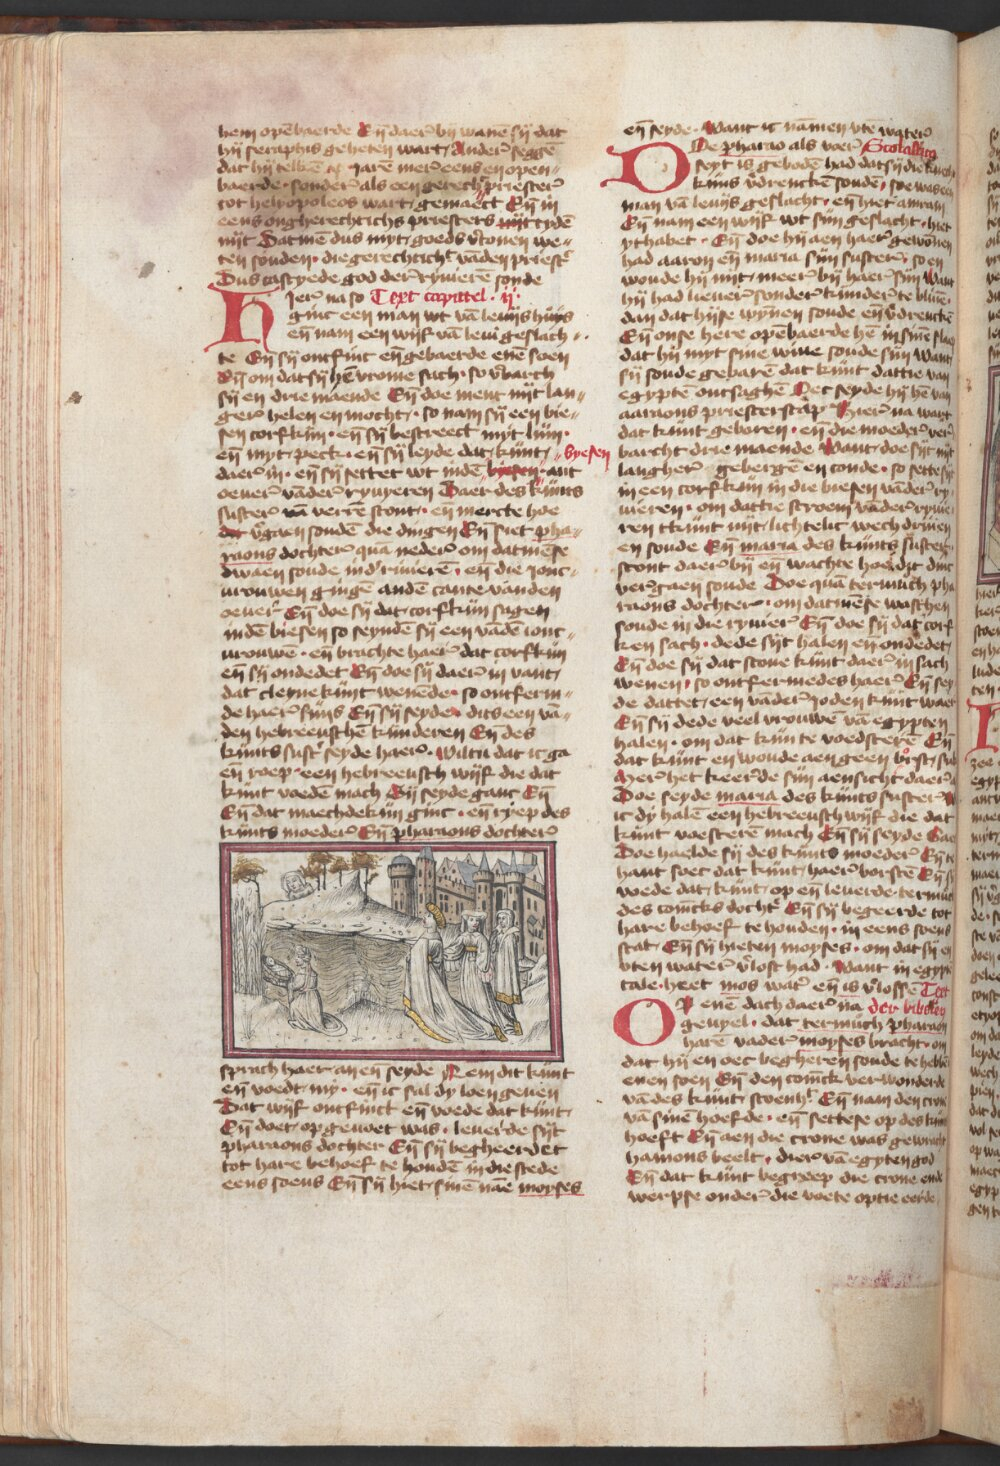 hem opēbaerde Eñ daer̄ bij wanē sij dat
hij seraphis geheten wart Ander̄ seggē
dat hij telkē jarē mer eens en open-
baerde · sonder als een gerecht̄ priester̄
tot helyopoleos wart gemaect Eñ in
eens ongherechtichs priesters tydē
nijt Datmē dus myt goeds v̄tonen we-
ten souden · die gerechtich̄t vādē priest̄
Dus castyede god der̄ ryvierē sonde
Hier̄ na so Text capittel · ij ·
ginc een man wt vā levijs huijs
eñ nam een wijf vā levi geslach-
te Eñ sij ontfinc eñ gebaerde enē soen
Eñ om dat sij hē vrome sach · so v̄barch
sij en drie maende Eñ doe ment nijt lan-
ger helen en mocht · so nam sij een bie-
sen corfkijn · eñ sij bestreect myt lijm ·
eñ myt peck · eñ sij leyde dat kijnt
daer̄ in · eñ sij settet wt indē biesen ant byesen
oever̄ vāder̄ ryvyeren Daer des kijnts
suster̄ vā verrē stont · eñ mercte hoe
v̄gaen soudē die dingen Eñ siet pha-
raons dochter̄ quā neder̄ om datmēse
dwaen soude ind' rivierē · eñ die jonc-
vrouwen gingē andē cante vanden
oever̄ Eñ doe sij dat corfkijn sagen
indē biesen so seyndē sij een vādē ionc-
vrouwē · eñ brachte haer̄ dat corfkijn
eñ sij ondedet Eñ doe sij daer̄ in vant
dat cleyne kijnt wenēde · so ontferm-
de haer̄ sijns Eñ sij seyde · dits een vā-
den hebreeuschē kinderen Eñ des
kijnts sust̄ seyde haer̄ · Wiltu dat ic ga
eñ roep · een hebreeusch wijf die dat
kijnt voedē mach Sij seyde gaat Eñ
Eñ dat maechdekijn ginc · eñ ryep des
kijnts moeder̄ Eñ pharaons dochter̄
sprach haer an eñ seyde Nem dit kijnt
eñ voedt my · eñ ic sal dy loen geven
Dat wijf ontfinct eñ voede dat kijnt
Eñ doet op gevoet was · leverde sijt
pharaons dochter Eñ sij begheerdet
tot hare behoef te houdē in die stede
eens soens Eñ sij hiet sinē nāe moyses
eñ seyde · Want ic nāmen vtē water̄
Doe pharao als voer̄ Scolastica
seyt is geboden had datsij die
kijns v̄drenckē soudē · soe was een
man vā levijs geslacht · eñ hiet amram
Eñ nam een wijf wt sijn geslacht · hiet
ythabet · Eñ doe hij aen haer̄ gewonnen
had aaron eñ maria sijn suster̄ · so en
woude hij nijt meer̄ bij haer̄ sijn Want
hij had liever sonder̄ kinder̄ te bliven
dan dat hijse wynnen soude eñ v̄drencken
Eñ onse here opēbaerde hē in sinē slaep
dat hij myt sine wive soude sijn Want
sij soude gebarē dat kijnt dattie van
egyptē ontsaghē Oec seyde hij hē van
aaraons priesterscap Hier̄ na wart
dat kijnt geboren · eñ die moeder̄ ver̄
barcht drie maende Want doe sijt nijt
langher̄ gebergē en conde · so sette sijt
in een corfkijn in die biesen vāder̄ ry-
vieren · om dattie stroem vāder̄ ryvie-
ren tkijnt nijt lichtelic wech driven
en soude Eñ maria des kijnts suster
stont daer̄ bij eñ wachte hoet dyt dinc
ver̄gaen soude Doe quā termuth pha
raons dochter̄ · om datmēse wasschen
soude in die ryvier Eñ doe sij dat corf
ken sach · dede sijt halen eñ ondedet
Eñ doe sij dat scone kijnt daer̄ in sach
wenen · so ontfermedes haer̄ Eñ sey
de dattet een vāder̄ joden kijnt waer
Eñ sij dede veel vrouwē vā egypten
halen · om dat kijn te voedsterē Eñ
dat kijnt en woude aen geen borst
Mer̄ het keerde sijn aensicht daer̄
Doe seyde maria des kijnts suster̄
ic dy halē een hebreeusch wijf die dat
kijnt voesterē mach Eñ sij seyde Gae
Doe haelde sij des kijnts moeder̄ Eñ te
hant soec dat kijnt haer̄ borstē Eñ sij
voede dat kijnt op eñ leverde termut
des conīcks docht̄ Eñ sij begeerde tot
hare behoef te houden · in eens soens
stat Eñ sij hieten moyses · om dat sij en
vten water v̄lost had · Want in egyp
tale heet mos wat̄ eñ is v̄lossē Text
Op enē dach daer̄ na der bibelen
gevyel · dat termuth pharaon
harē vader moyses bracht · om
dat hij en oec begheren soude te hebbē
enen soen Eñ den conīck verwonderde
vā des kijnt stoenh̄t Eñ nam den crone
vā sinē hoefde · eñ settese op des kijnts
hoeft Eñ aen die crone was gewracht
hamons beelt · dier̄ vā egyten god
Eñ dat kijnt begreep die crone ende
werpse onder̄ die voete op tie eerde